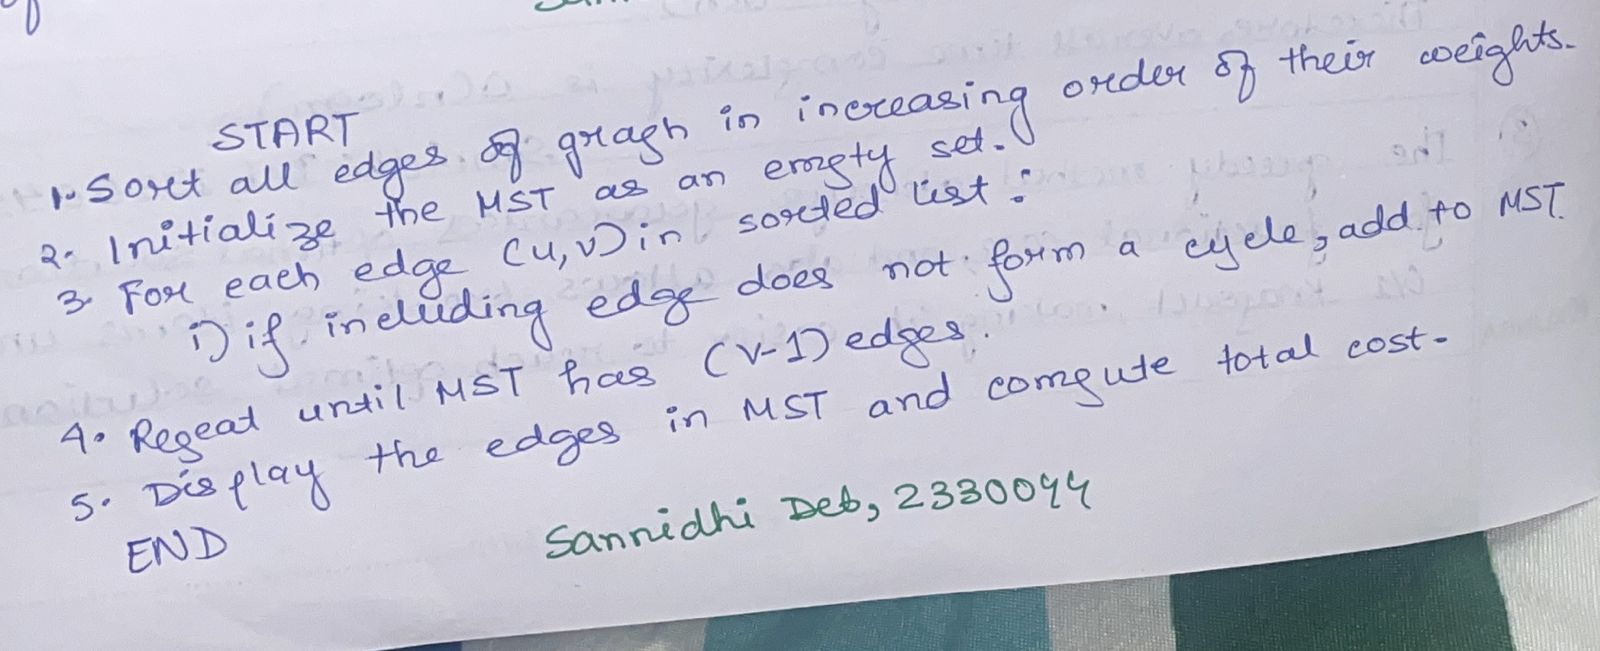 START
1. Sort all edges of graph in increasing order of their weights.
2. Initialize the MST as an empty set.
3. For each edge (u,v) in sorted list :
i) if including edge does not form a cycle, add to MST.
4. Repeat until MST has (V-1) edges.
5. Display the edges in MST and compute total cost.
END
Sannidhi Deb, 2330044